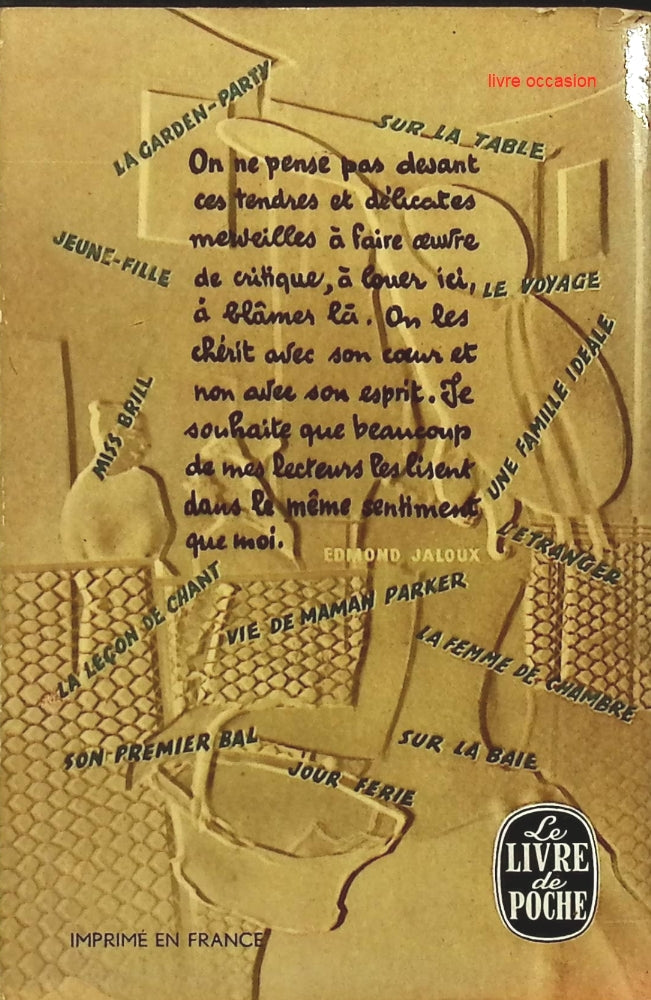 livre occasion
LA GARDEN-PARTY
SUR LA TABLE
On ne pense pas devant
ces tendres et délicates
merveilles à faire œuvre
JEUNE-FILLE
de critique, à louer ici,
LE VOYAGE
à blâmer là. On les
chérit avec son cœur et
non avec son esprit. Je
souhaite que beaucoup
de mes lecteurs les lisent
dans le même sentiment
que moi.
MISS BRILL
UNE FAMILLE IDEALE
EDMOND JALOUX
L'ETRANGER
LA LEÇON DE CHANT
VIE DE MAMAN PARKER
LA FEMME DE CHAMBRE
SON PREMIER BAL
SUR LA BAIE
JOUR FERIE
Le
LIVRE
de
POCHE
IMPRIMÉ EN FRANCE